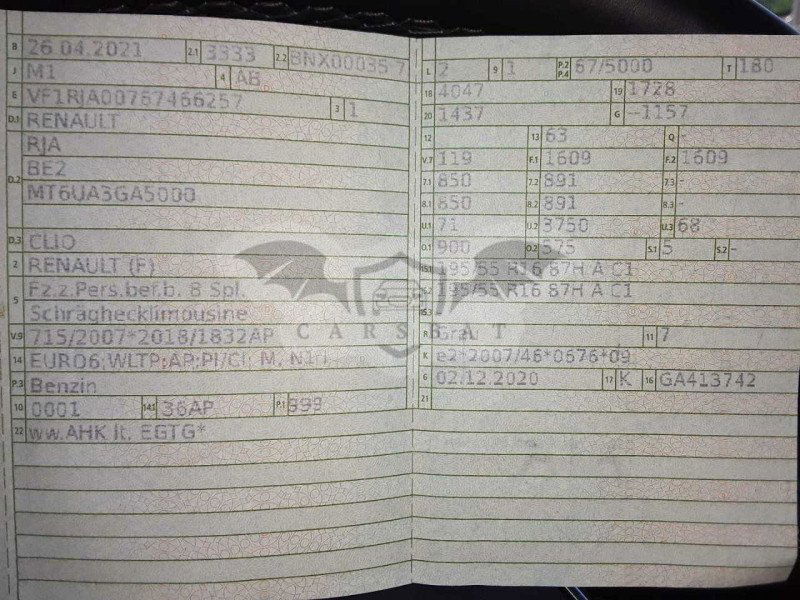 B 26.04.2021 2.1 3333 2.2 BNX00035 7
J M1 4 AB
E VF1RJA00767466257 3 1
D.1 RENAULT
RJA
D.2 BE2
MT6UA3GA5000
D.3 CLIO
2 RENAULT (F)
5 Fz.z.Pers.bef.b. 8 Spl.
Schräghecklimousine
V.9 715/2007*2018/1832AP
14 EURO6;WLTP;AP;PI/CI; M, N1
P.3 Benzin
10 0001 14.1 36AP P.1 999
22 ww.AHK lt. EGTG*
L 2 9 1 P.2 P.4 67/5000 T 180
18 4047 19 1728
20 1437 G --1157
12 13 63 Q -
V.7 119 F.1 1609 F.2 1609
7.1 850 7.2 891 7.3 -
8.1 850 8.2 891 8.3 -
U.1 71 U.2 3750 U.3 68
O.1 900 O.2 575 S.1 5 S.2 -
15.1 195/55 R16 87H A C1
195/55 R16 87H A C1
15.3
R Grau 11 7
K e2*2007/46*0676*09
6 02.12.2020 17 K 16 GA413742
21
CARSBAT